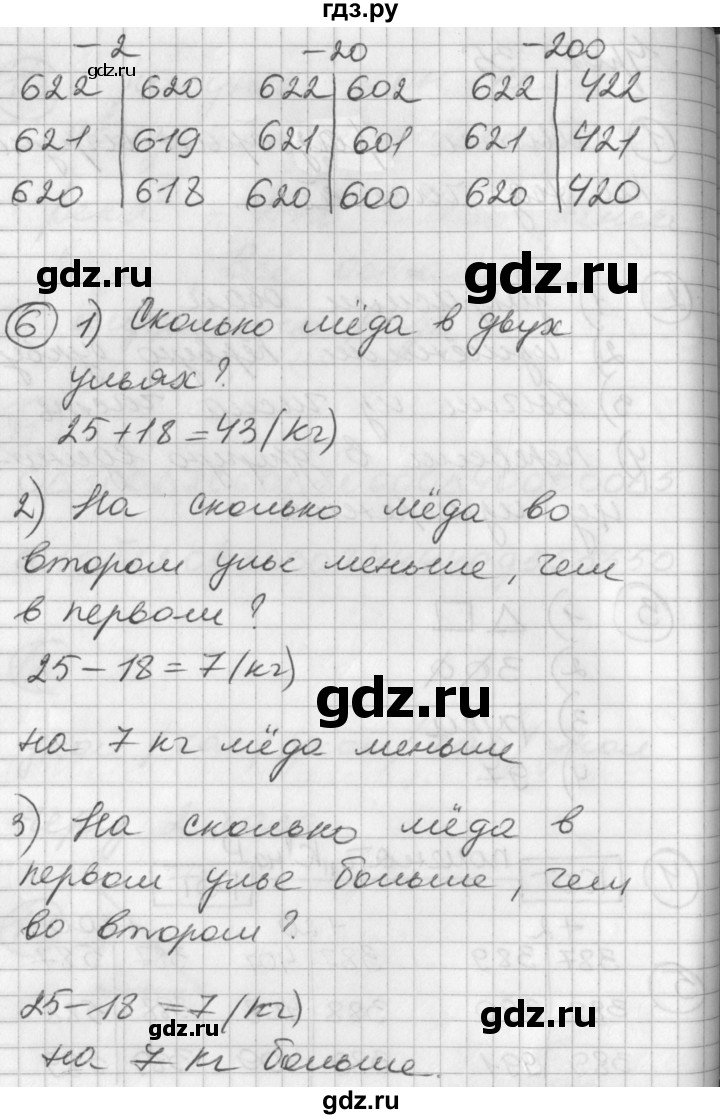 гдз.ру
-2 -20 -200
gdz.ru
622 | 620 622 | 602 622 | 422
621 | 619 621 | 601 621 | 421
620 | 618 620 | 600 620 | 420
gdz.ru gdz.ru
6 1) Сколько мёда в двух
ульях?
25+18=43(кг)
2) На сколько мёда во
втором улье меньше, чем
в первом?
25-18=7(кг)
gdz.ru
на 7 кг мёда меньше
3) На сколько мёда в
первом улье больше, чем
во втором?
25-18=7(кг)
gdz.ru gdz.ru
на 7 кг больше.
гдз.ру